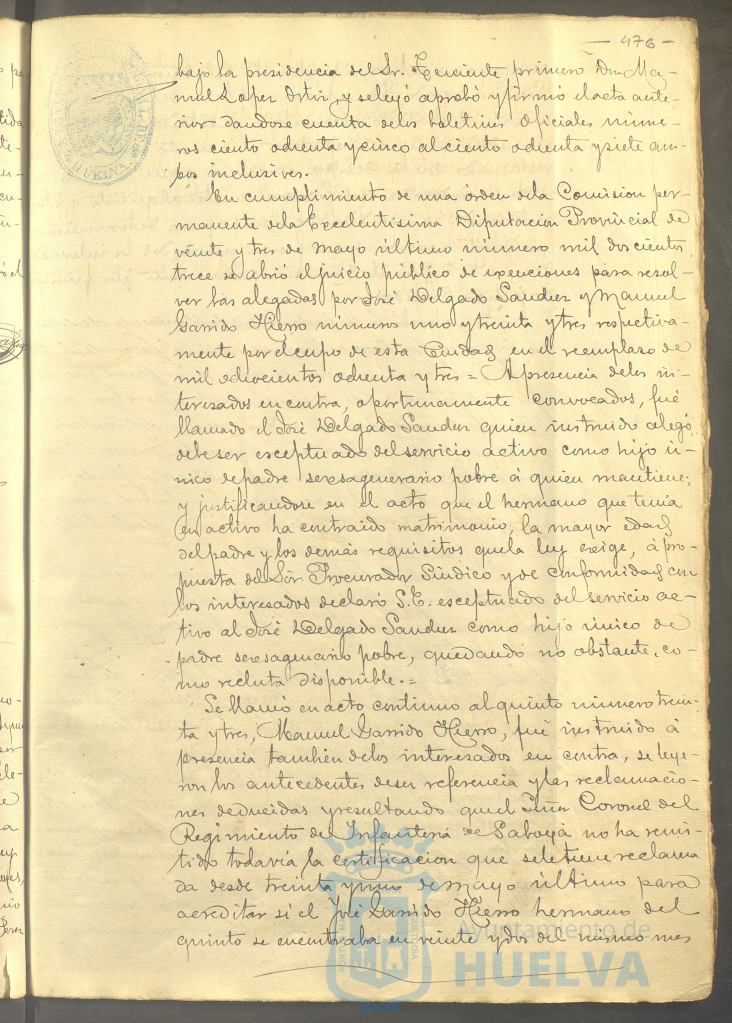 — 476 —
bajo la presidencia del Sr. Teniente primero Don Ma-
nuel Lopez Ortiz, y se leyó aprobó y firmó el acta ante-
rior dandose cuenta de los boletines oficiales núme-
ros ciento ochenta y cinco al ciento ochenta y siete am-
bos inclusives.
En cumplimiento de una órden de la Comision per-
manente de la Excelentisima Diputacion Provincial de
veinte y tres de mayo último número mil doscientos
trece se abrió el juicio público de exenciones para resol-
ver las alegadas por José Delgado Sanchez y Manuel
Garrido Hierro números uno y treinta y tres respectiva-
mente por el cupo de esta Ciudad en el reemplazo de
mil ochocientos ochenta y tres = A presencia de los in-
teresados en contra, oportunamente convocados, fué
llamado el José Delgado Sanchez quien instruido alegó,
debe ser exceptuado del servicio activo como hijo ú-
nico de padre sexsagenerario pobre á quien mantiene;
y justificandose en el acto que el hermano que tenia
en activo ha contraido matrimonio, la mayor edad
del padre y los demás requisitos que la ley exige, á pro-
puesta del Sór Procurador Síndico y de conformidad con
los interesados declaró S.E. exceptuado del servicio ac-
tivo al José Delgado Sanchez como hijo único de
padre sexsagenario pobre, quedando no obstante, co-
mo recluta disponible. =
Se llamó en acto continuo al quinto número trein-
ta y tres, Manuel Garrido Hierro, fué instruido á
presencia tambien de los interesados en contra, se leye-
ron los antecedentes de su referencia y las reclamacio-
nes deducidas y resultando que el Señor Coronel del
Regimiento de Infanteria de Saboya no ha remi-
tido todavía la certificacion que se le tiene reclama
da desde treinta y uno de mayo último para
acreditar si el José Garrido Hierro hermano del
quinto se encontraba en veinte y dos del mismo mes
Ayuntamiento de
HUELVA